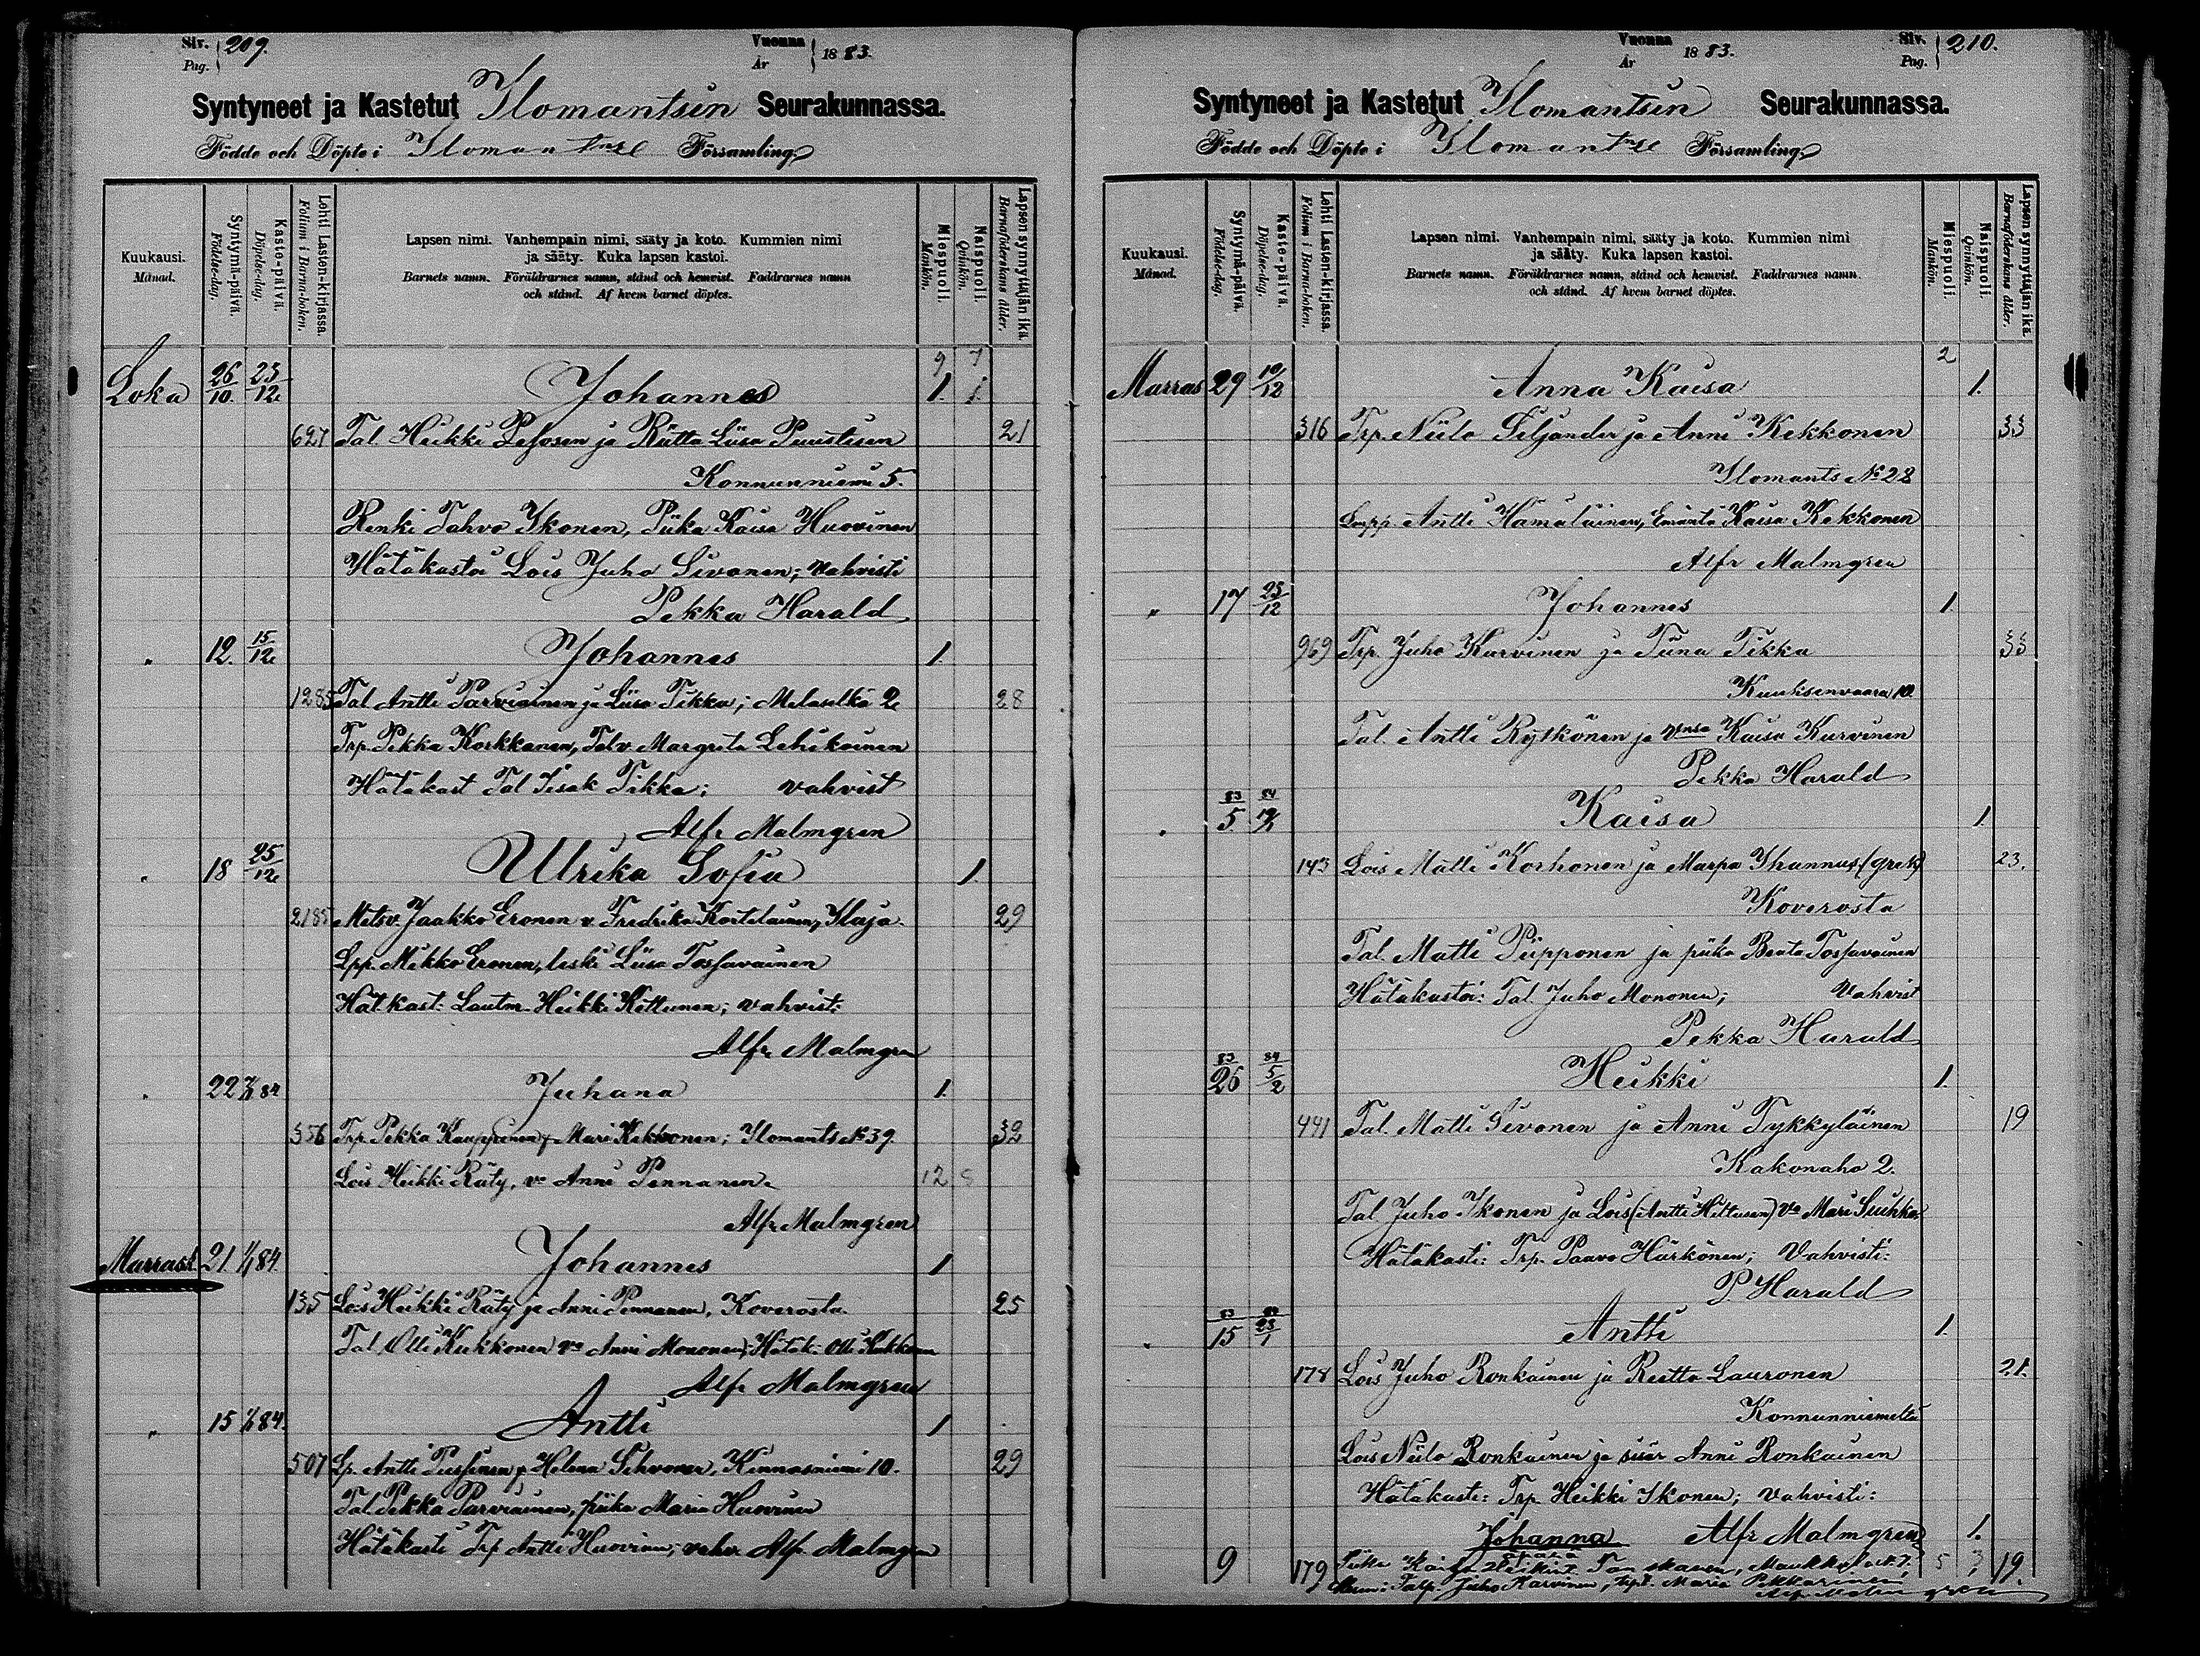 Siv. Pag. 209.
Vuonna År 1883.
Syntyneet ja Kastetut Ilomantsin Seurakunnassa.
Födde och Döpte i Ilomants Församling.
Kuukausi. Månad.
Syntymä-päivä. Födelse-dag.
Kaste-päivä. Döpelse-dag.
Lehti Lasten-kirjassa. Folium i Barna-boken.
Lapsen nimi. Vanhempain nimi, sääty ja koto. Kummien nimi
ja sääty. Kuka lapsen kastoi.
Barnets namn. Föräldrarnes namn, stånd och hemvist. Faddrarnes namn
och stånd. Af hvem barnet döptes.
Miespuoli. Mankön.
Naispuoli. Qvinkön.
Lapsen synnyttäjän ikä. Barnaföderskans ålder.
9 7
Loka 26/10. 25/12 Johannes 1. 1.
627 Tal Heikki Pesosen ja Riitta Liisa Puustisen 21
Konnunniemi 5.
Renki Tahvo Ikonen, Piika Kaisa Huovinen
Hätäkastoi Lois Juho Sivonen; vahvisti
Pekka Harald
" 12. 15/12 Johannes 1.
1285 Tal Antti Parviainen ja Liisa Tikka; Melaselkä 2 28
Trp. Pekka Korkkanen, Talv. Margreta Lehikoinen
Hätäkast Tal Iisak Tikka; vahvist
Alfr Malmgren
" 18 25/12 Ulrika Sofia 1.
2185 Metsv. Jaakko Eronen v. Fredrika Kortelainen, Ilaja 29
Lpp. Mikko Eronen, leski Liisa Tossavainen
Hät.kast: Lautm. Heikki Kettunen; vahvist:
Alfr Malmgren
" 22 84 Juhana 1.
356 Trp. Pekka Kauppinen Mari Kekkonen; Ilomants No 39. 32
Lois Heikki Räty, vo Anni Pennanen. 12
Alfr Malmgren
Marrask. 21 84. Johannes 1
135 Lois Heikki Räty ja Anni Pennanen, Koverosta. 25
Tal. Olli Kukkonen vo Anni Mononen; Hätäk: Olli Kukkonen
Alfr Malmgren
" 15 84. Antti 1
507 Lp. Antti Helena Sihvonen, Kinnasniemi 10. 29
Tal Pekka Parviainen, piika Maria Huovinen
Hätäkasti Trp Antti Huovinen; vahv. Alfr. Malmgren
Vuonna År 1883.
Siv. Pag. 210.
Syntyneet ja Kastetut Ilomantsin Seurakunnassa.
Födde och Döpte i Ilomants Församling.
Kuukausi. Månad.
Syntymä-päivä. Födelse-dag.
Kaste-päivä. Döpelse-dag.
Lehti Lasten-kirjassa. Folium i Barna-boken.
Lapsen nimi. Vanhempain nimi, sääty ja koto. Kummien nimi
ja sääty. Kuka lapsen kastoi.
Barnets namn. Föräldrarnes namn, stånd och hemvist. Faddrarnes namn.
och stånd. Af hvem barnet döptes.
Miespuoli. Mankön.
Naispuoli. Qvinkön.
Lapsen synnyttäjän ikä. Barnaföderskans ålder.
2
Marras 29 10/12 Anna Kaisa 1.
316 Trp. Niilo Siljander ja Anni Kekkonen 33
Ilomants No 28
Lmpp. Antti Hämäläinen, Emäntä Kaisa Kekkonen
Alfr Malmgren
" 17 25/12 Johannes 1.
969 Trp. Juho Kurvinen ja Tiina Tikka 33
Kuuksenvaara 10.
Tal. Antti Rytkönen ja vnsa Kaisa Kurvinen
Pekka Harald
" 83 5 84 Kaisa 1.
143 Lois Matti Korhonen ja Marpa Ihannus, (grek.) 23.
Koverosta
Tal. Matti Piipponen ja piika Beata Tossavainen
Hätäkastoi: Tal Juho Mononen; Vahvist
Pekka Harald
83 26 84 5/2 Heikki 1.
441 Tal. Matti Sivonen ja Anni Tykkyläinen 19
Kakonaho 2.
Tal. Juho Ikonen ja Lois (Antti Hiltusen) vo Mari
Hätäkasti: Trp. Paavo Härkönen; Vahvisti:
P. Harald
" 83 15 84 23/1 Antti 1.
178 Lois Juho Ronkainen ja Reetta Lauronen 21.
Konnunniemeltä
Lois Niilo Ronkainen ja sisar Anni Ronkainen
Hätäkasti: Trp Heikki Ikonen; Vahvisti:
Johanna Alfr Malmgren 1.
9 179 Piika Kaisa 5 3 19.
Juho Karvinen, Maria Pekkarinen
Alfr Malmgren